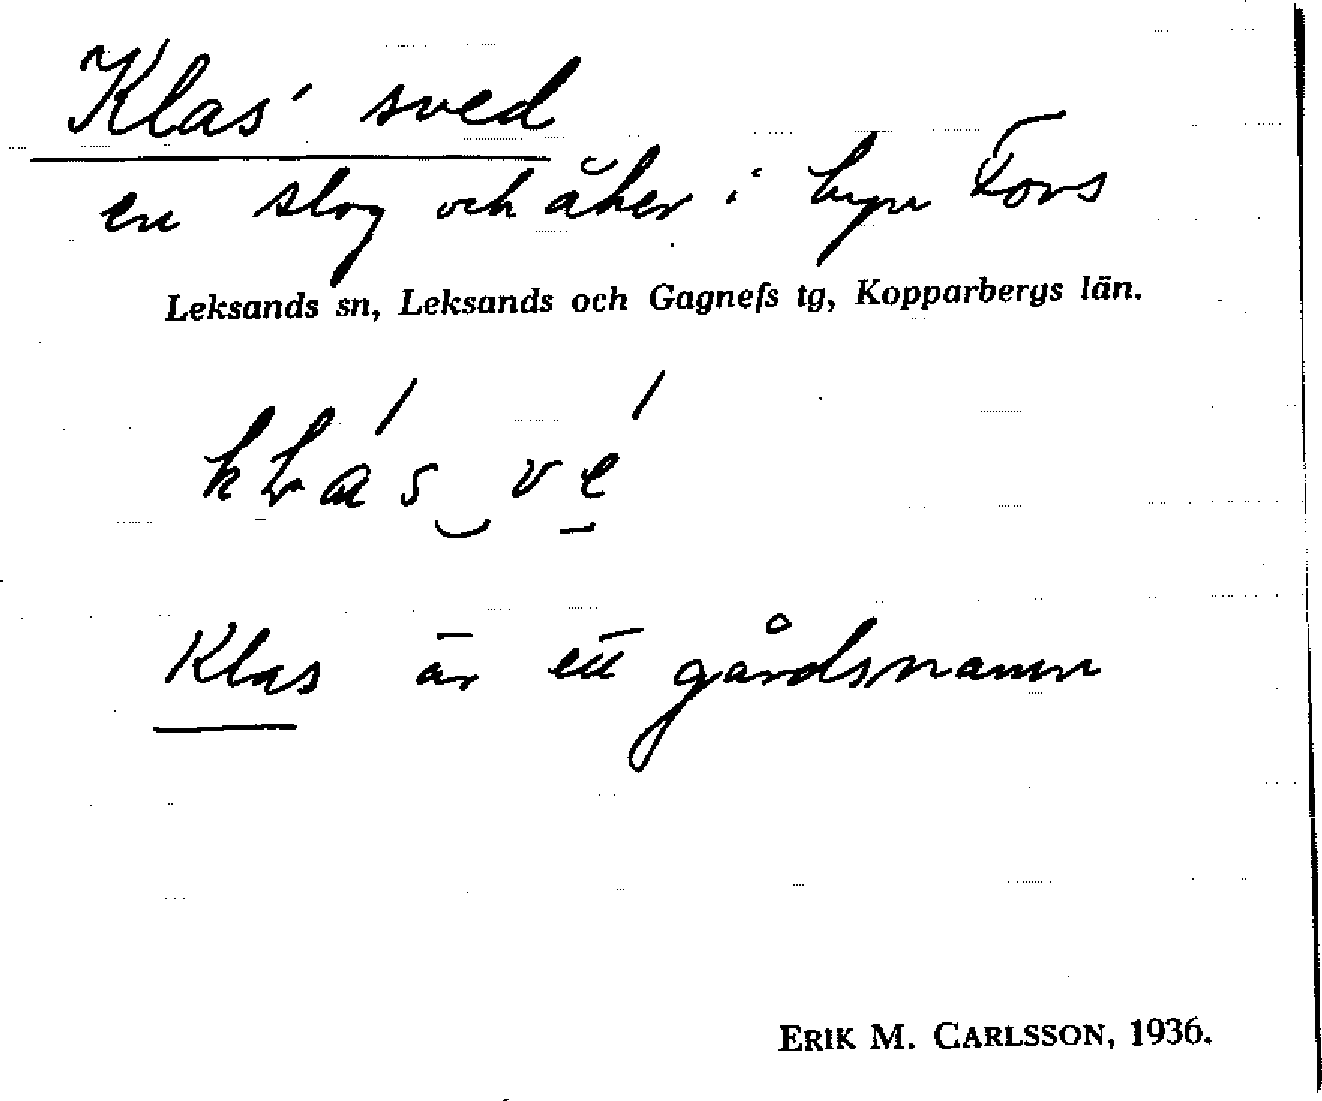 Klas' sved
en slog och åker i byn Fors
Leksands sn, Leksands och Gagnefs tg, Kopparbergs län.
Klas är ett gårdsnamn
ERIK M. CARLSSON, 1936.